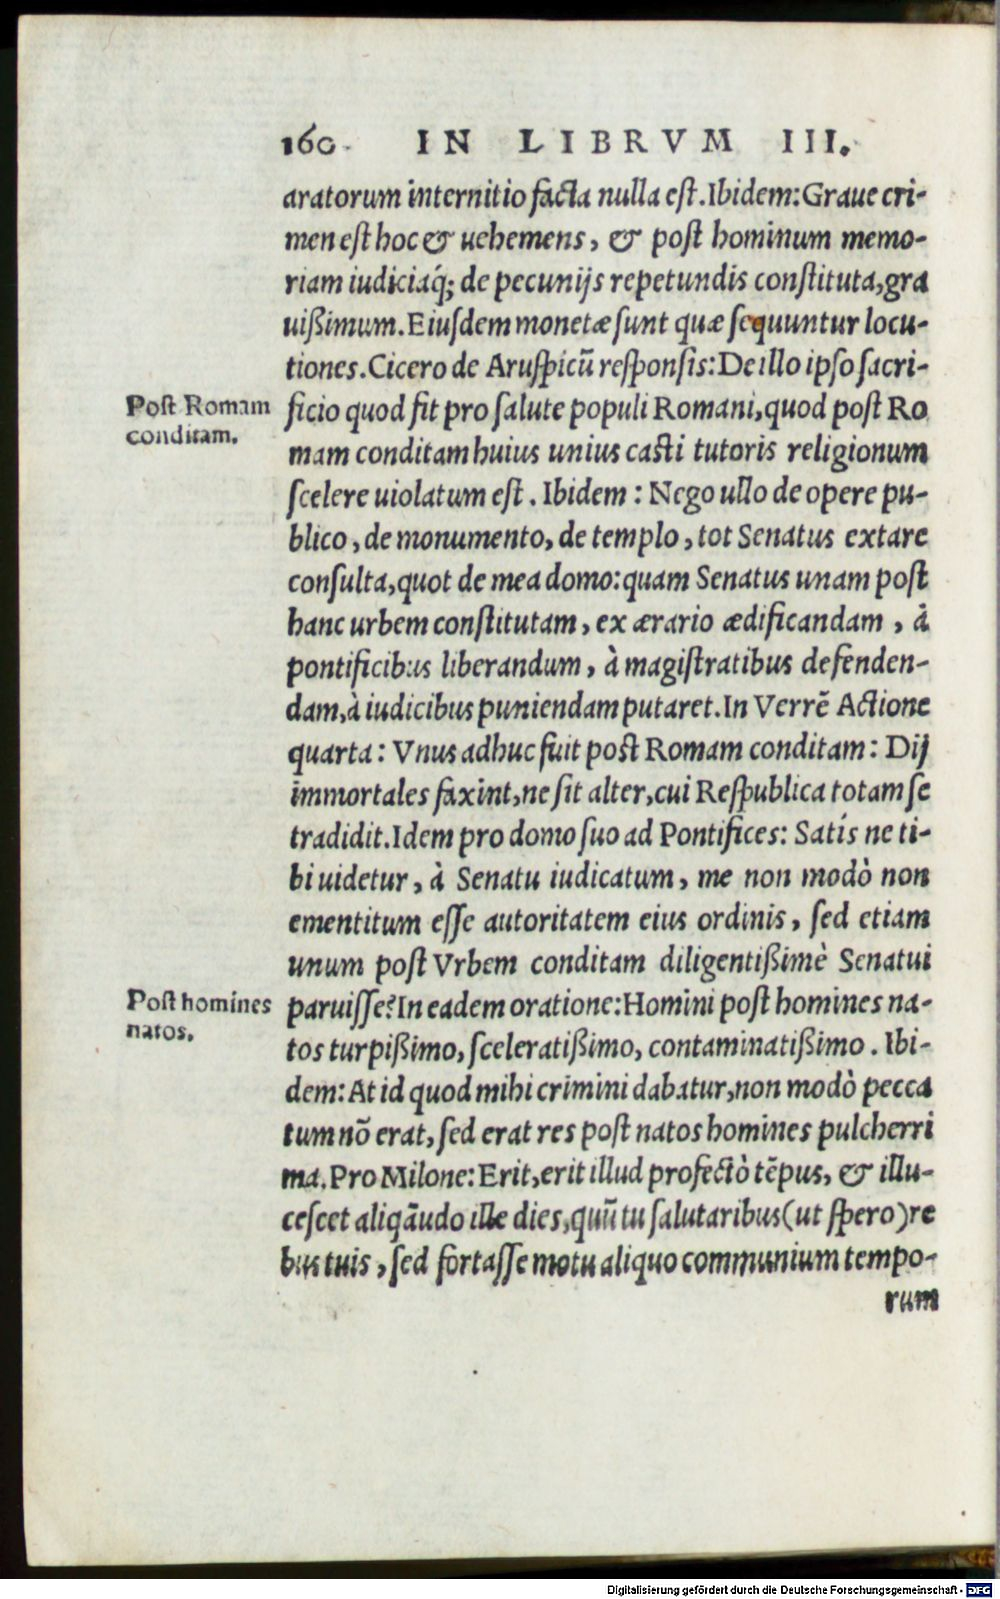 160 IN LIBRVM III.
aratorum internitio facta nulla est. Ibidem: Graue cri-
men est hoc & uehemens, & post hominum memo-
riam iudiciaq́; de pecunijs repetundis constituta, gra
uißimum. Eiusdem monetæ sunt quæ sequuntur locu-
tiones. Cicero de Aruspicũ responsis: De illo ipso sacri-
Post Romam
conditam.
ficio quod fit pro salute populi Romani, quod post Ro
mam conditam huius unius casti tutoris religionum
scelere uiolatum est. Ibidem: Nego ullo de opere pu-
blico, de monumento, de templo, tot Senatus extare
consulta, quot de mea domo: quam Senatus unam post
hanc urbem constitutam, ex ærario ædificandam, à
pontificibus liberandum, à magistratibus defenden-
dam, à iudicibus puniendam putaret. In Verrẽ Actione
quarta: Vnus adhuc fuit post Romam conditam: Dij
immortales faxint, ne sit alter, cui Respublica totam se
tradidit. Idem pro domo suo ad Pontifices: Satís ne ti-
bi uidetur, à Senatu iudicatum, me non modò non
ementitum esse autoritatem eius ordinis, sed etiam
unum post Vrbem conditam diligentißimè Senatui
Post homines
natos.
paruisse? In eadem oratione: Homini post homines na-
tos turpißimo, sceleratißimo, contaminatißimo. Ibi-
dem: At id quod mihi crimini dabatur, non modò pecca
tum nõ erat, sed erat res post natos homines pulcherri
ma. Pro Milone: Erit, erit illud profectò tẽpus, & illu-
cescet aliqãudo ille dies, quũ tu salutaribus (ut spero) re
bus tuis, sed fortasse motu aliquo communium tempo-
rum
Digitalisierung gefördert durch die Deutsche Forschungsgemeinschaft - DFG